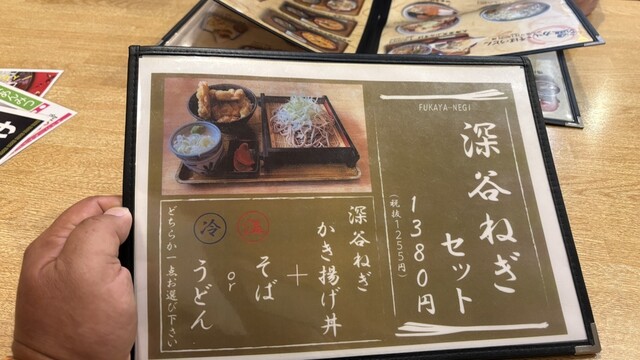 FUKAYA-NEGI
深谷ねぎ
セット
1380円
(税抜1255円)
深谷ねぎ
かき揚げ丼
+
そば
or
うどん
温
冷
どちらか一点お選び下さい